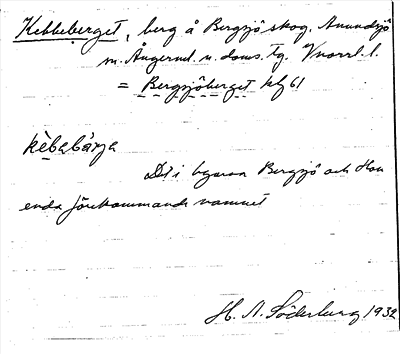 Kebbeberget, berg å Bergsjö skog, Anundsjö
m. Ångerml. n. doms. fg. Vnorrl. l.
= Bergsjöberget hbg 61
kèbabárja
Det i byarna Bergsjö och
enda förekommande namnet
H. A. Söderberg 1932